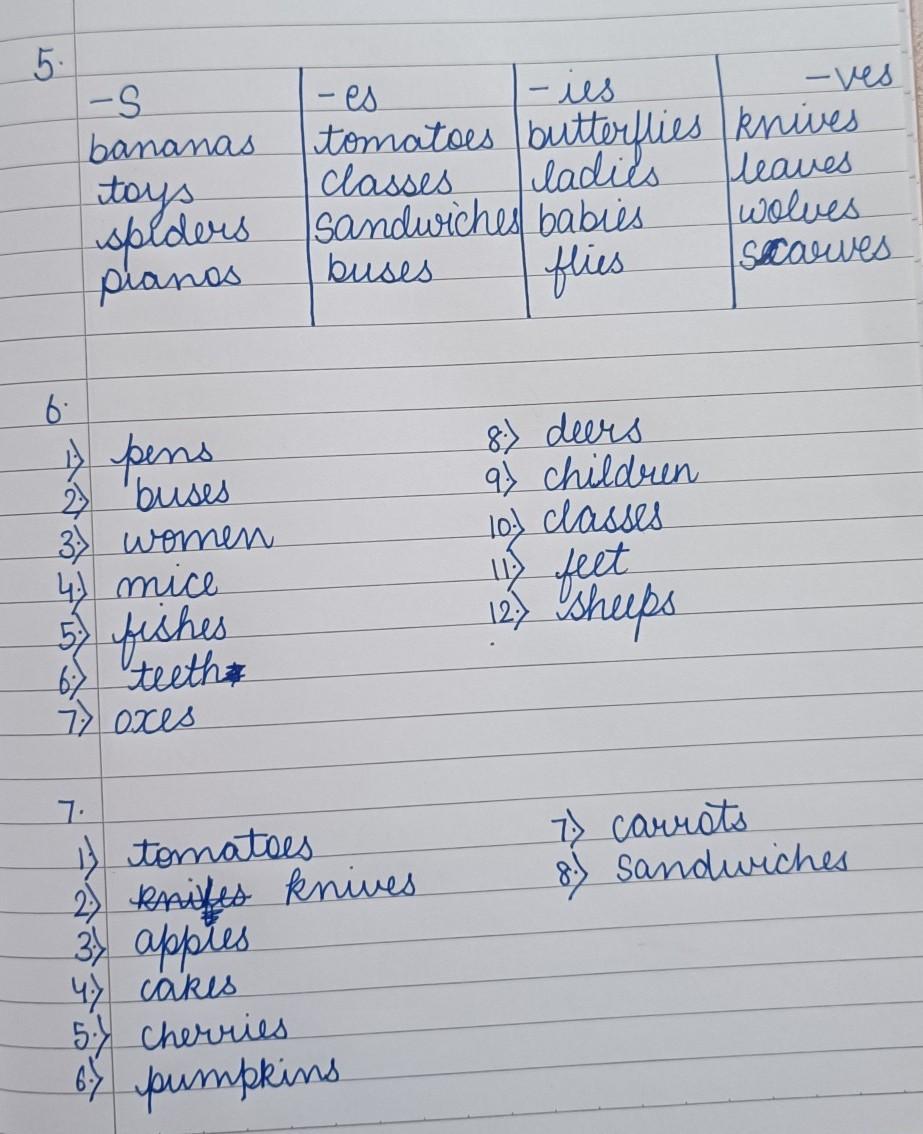 5.
-s -es -ies -ves
bananas tomatoes butterflies knives
toys classes ladies leaves
spiders sandwiches babies wolves
pianos buses flies scarves
6.
1) pens 8.) deers
2) buses 9) children
3) women 10.) classes
4.) mice 11.) feet
5.) fishes 12.) sheeps
6.) teeth
7.) oxes
7.
1) tomatoes 7.) carrots
2.) knifes knives 8.) sandwiches
3.) apples
4.) cakes
5.) cherries
6.) pumpkins